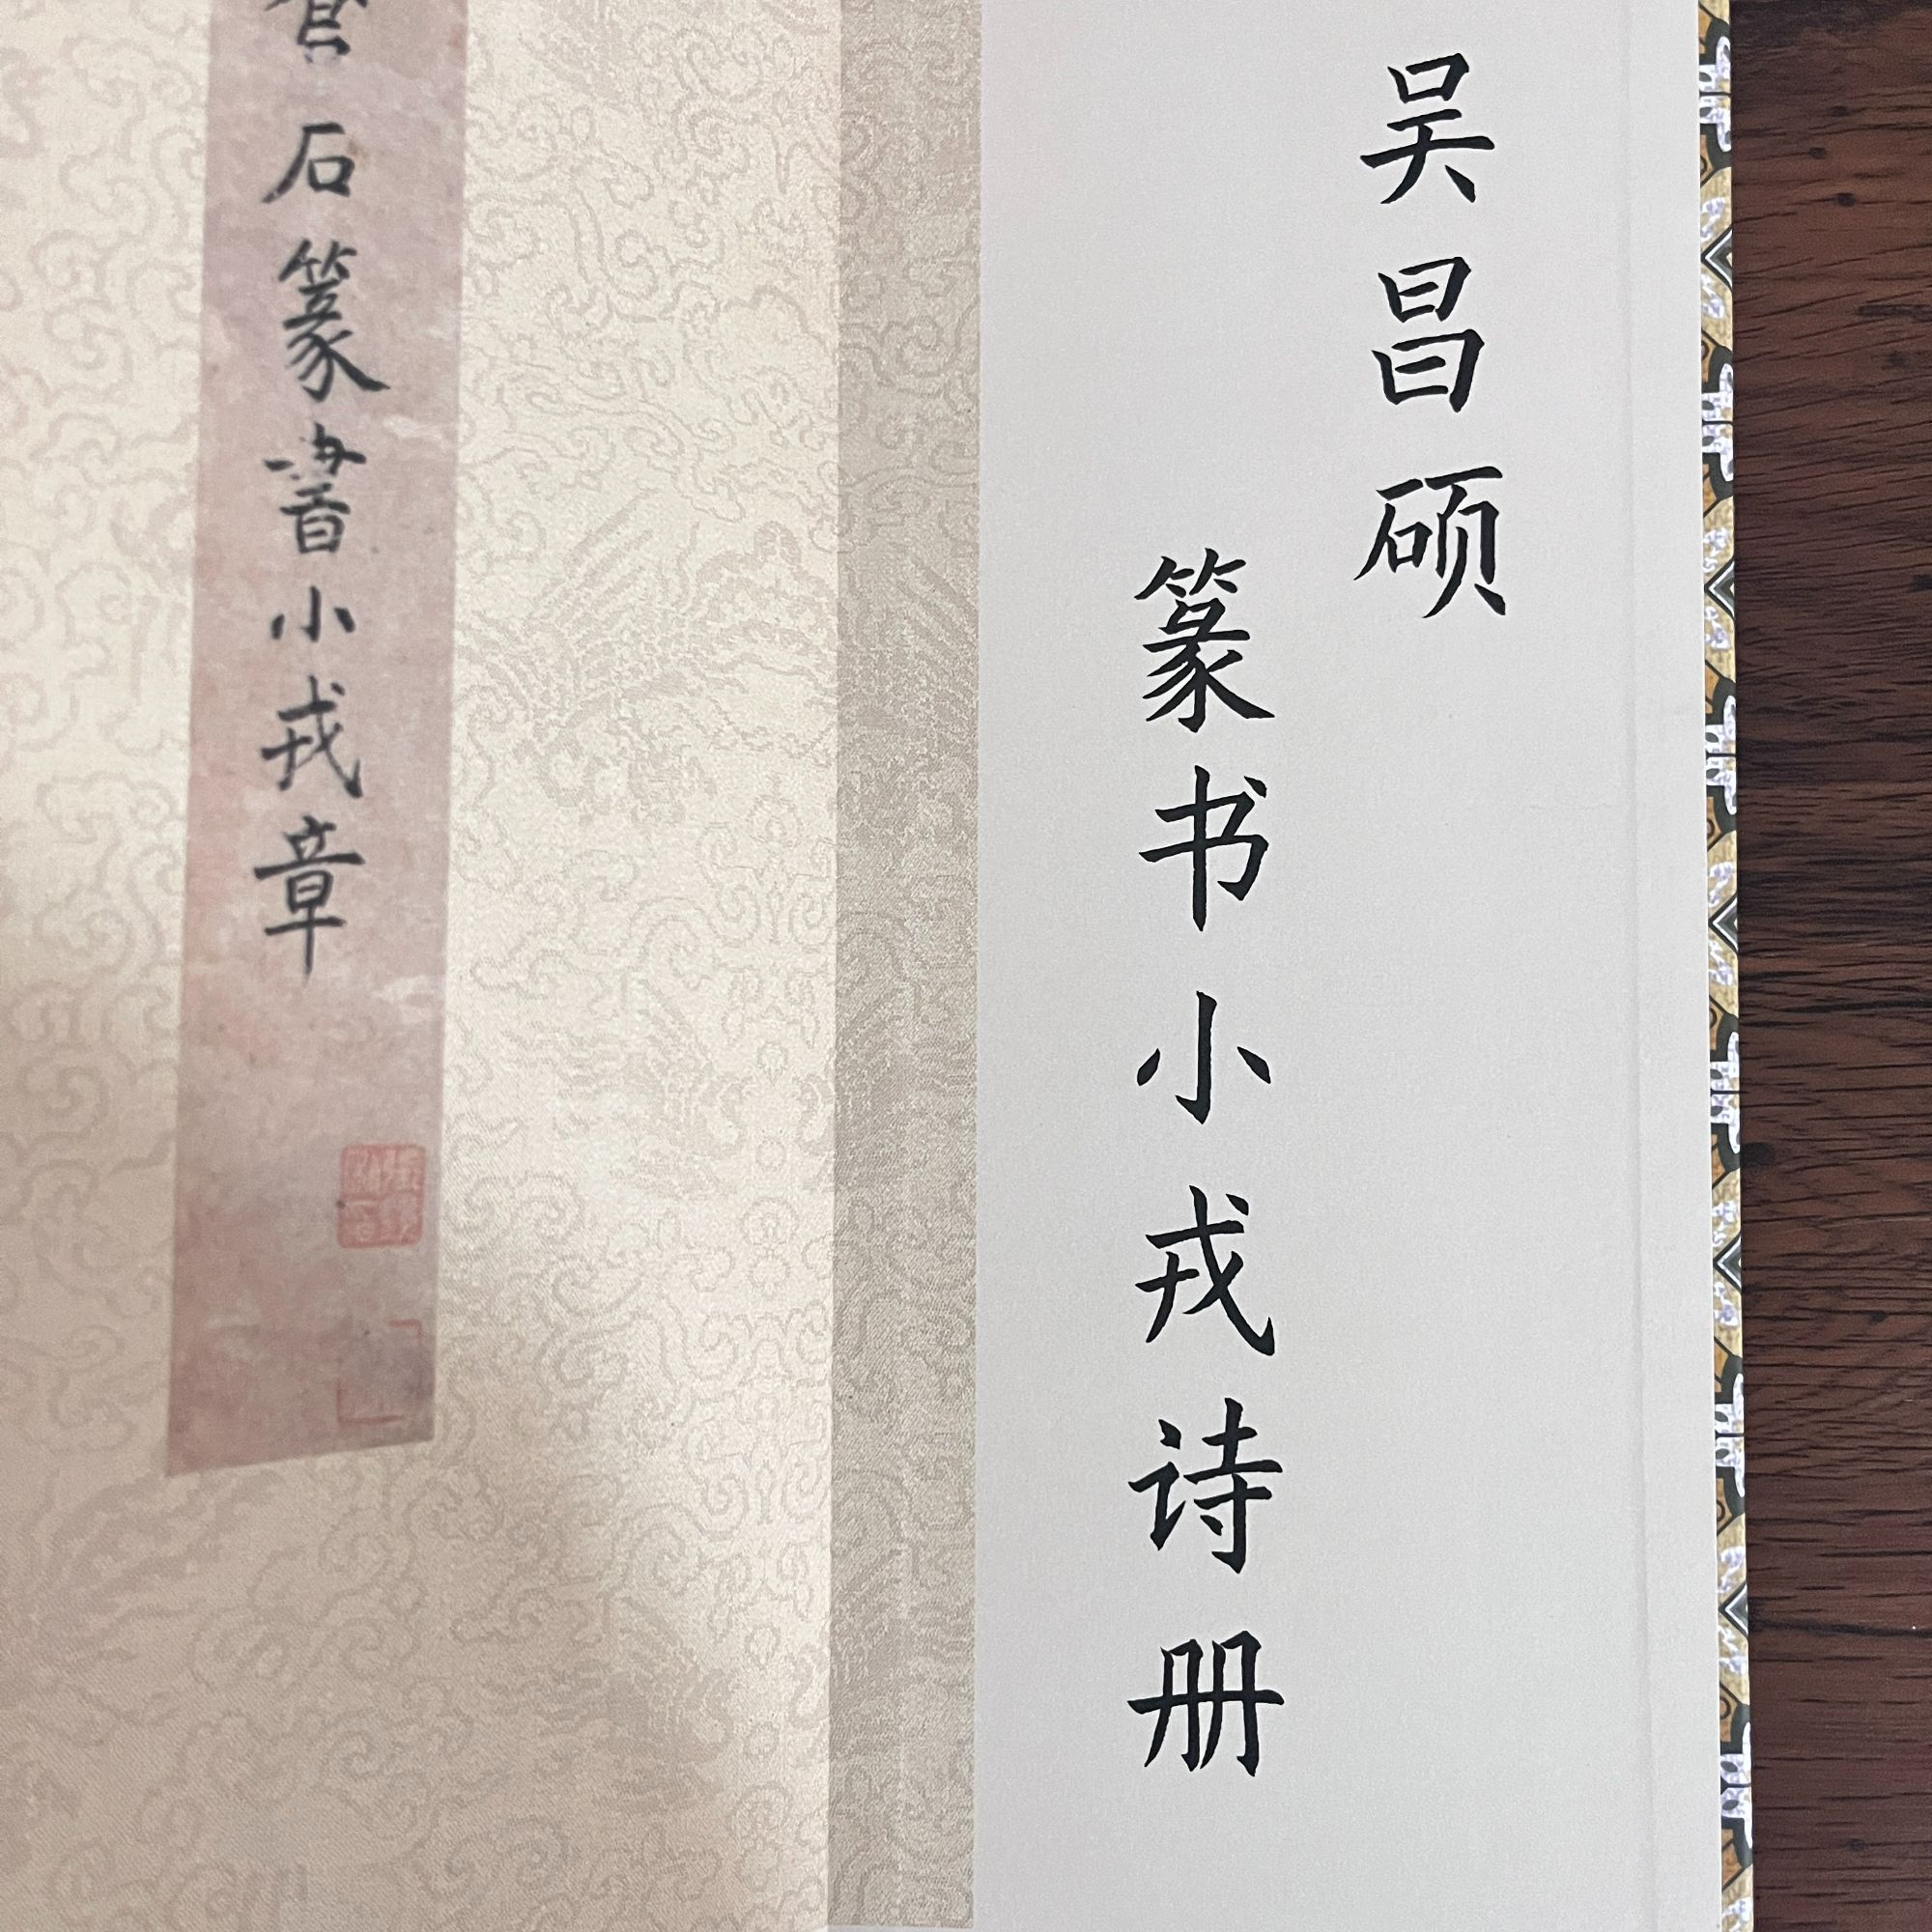 吴昌硕
篆书小戎诗册
石篆書小戎章